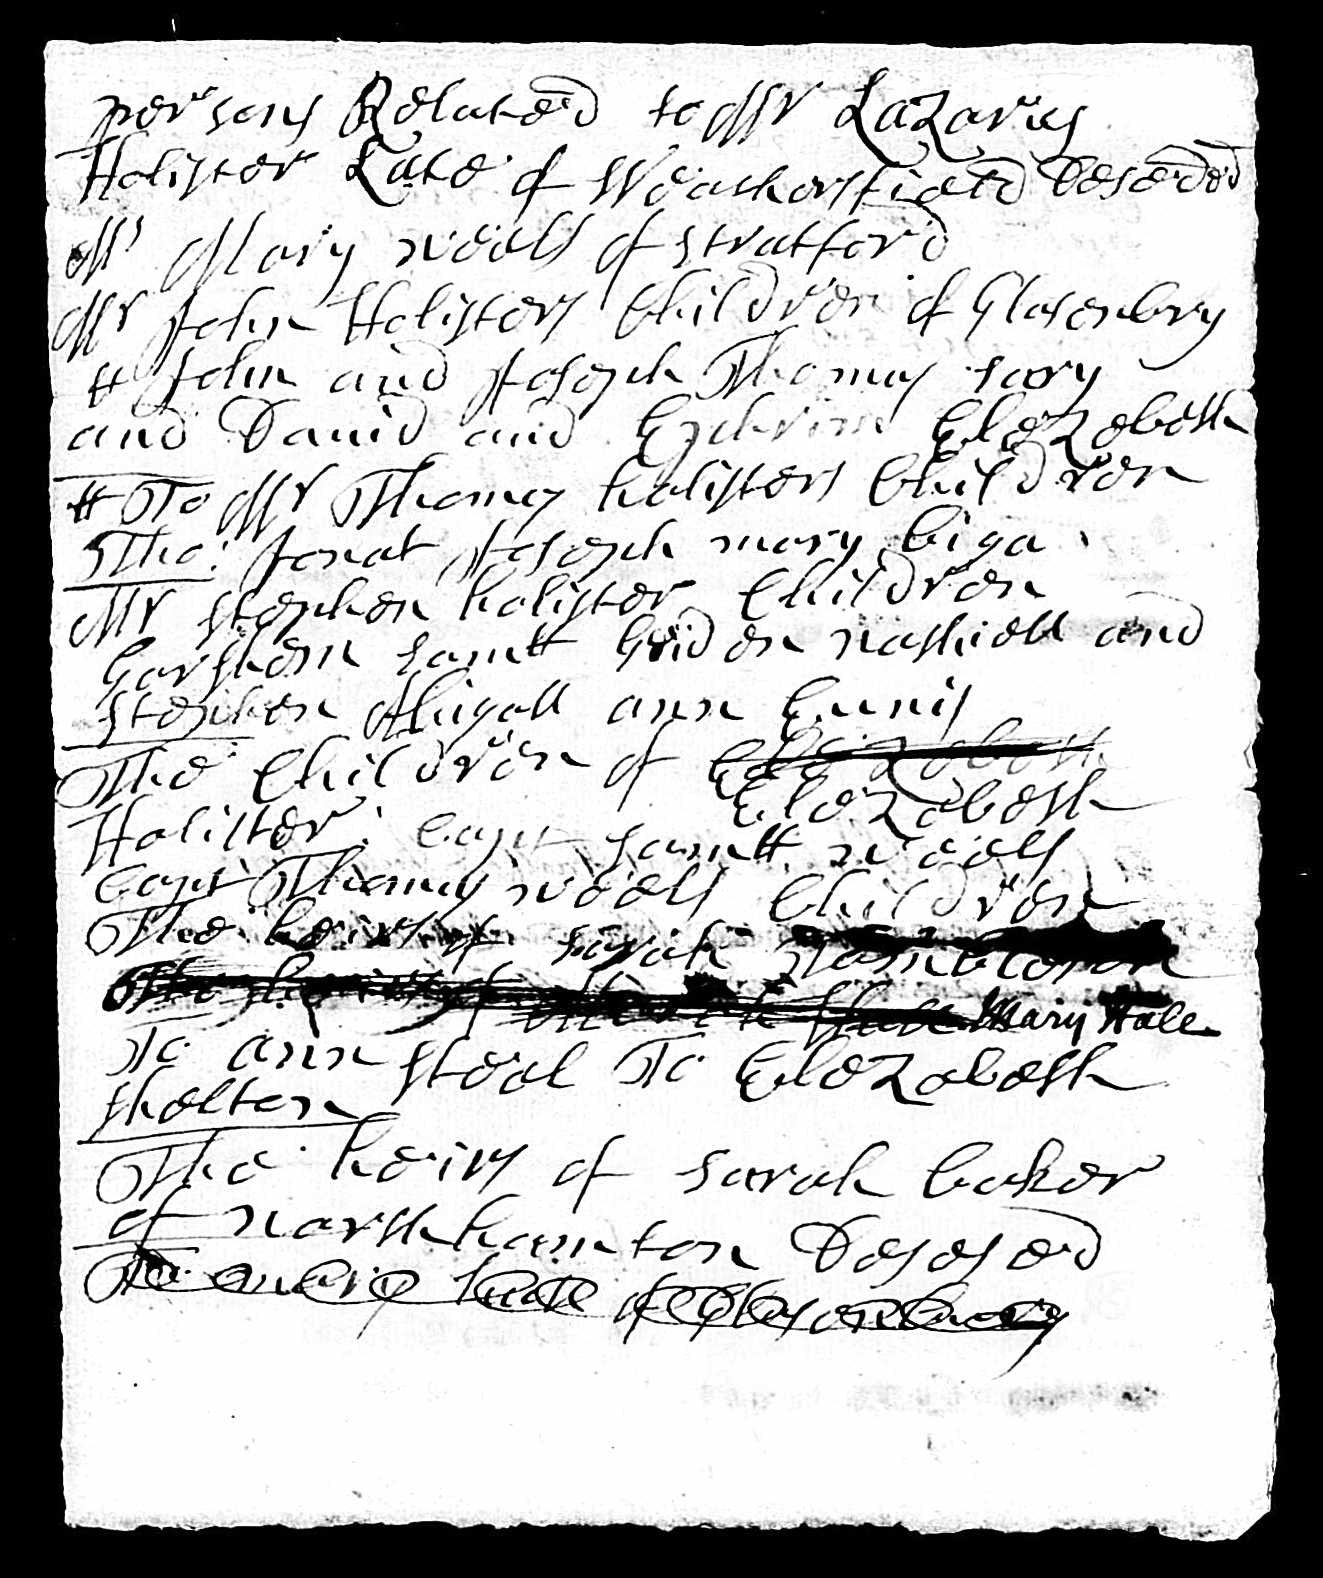 persons Related to Mr Lazarus
Holister Late of Weathersfield Deseded
Mrs Mary weells of stratford
Mr John Holisters Children of Glasenbry
John and Joseph Thomas sary
and Dauid and Ephrim Elezebeth
To Mr Thomas holisters Children
Tho: Jonat Joseph mary biga
Mr Stephen holister Children
Garshem samll Gideon nathiell and
stephen Abigall ann Eunis
The Children of Elezebeth
Elezebeth
Holister: Capt samll weells
Capt Thomas weells Children
The heirs of sarah
Mary Hale
To ann steel To Elezabeth
shelton
The heirs of sarah baker
of northhamton Desesed
To hale of Glasenbury